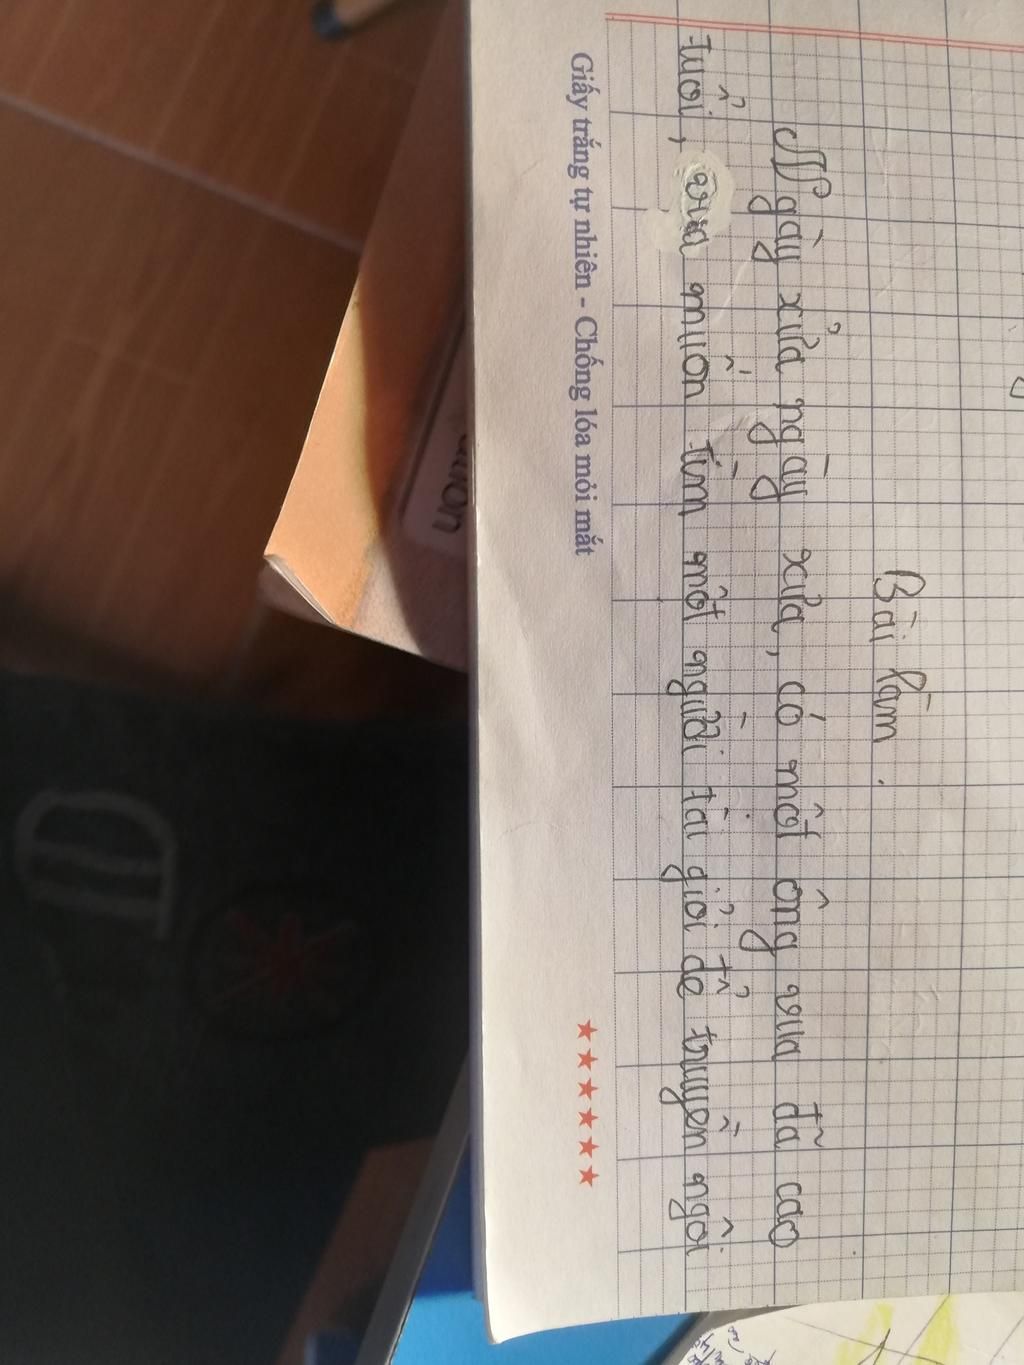 Bài làm.
Ngày xửa ngày xưa, có một ông vua đã cao
tuổi, vua muốn tìm một người tài giỏi để truyền ngôi
Giấy trắng tự nhiên - Chống lóa mỏi mắt